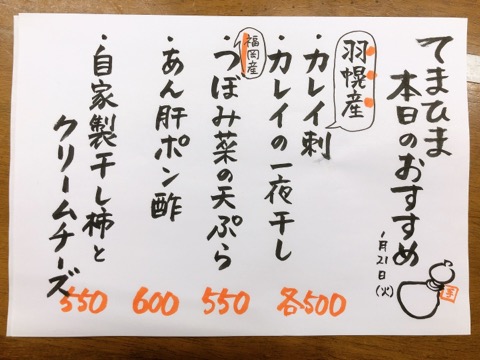 てまひま
本日のおすすめ
1月21日(火)
羽幌産
・カレイ刺
・カレイの一夜干し
各500
福岡産
・つぼみ菜の天ぷら
550
・あん肝ポン酢
600
・自家製干し柿と
クリームチーズ
550